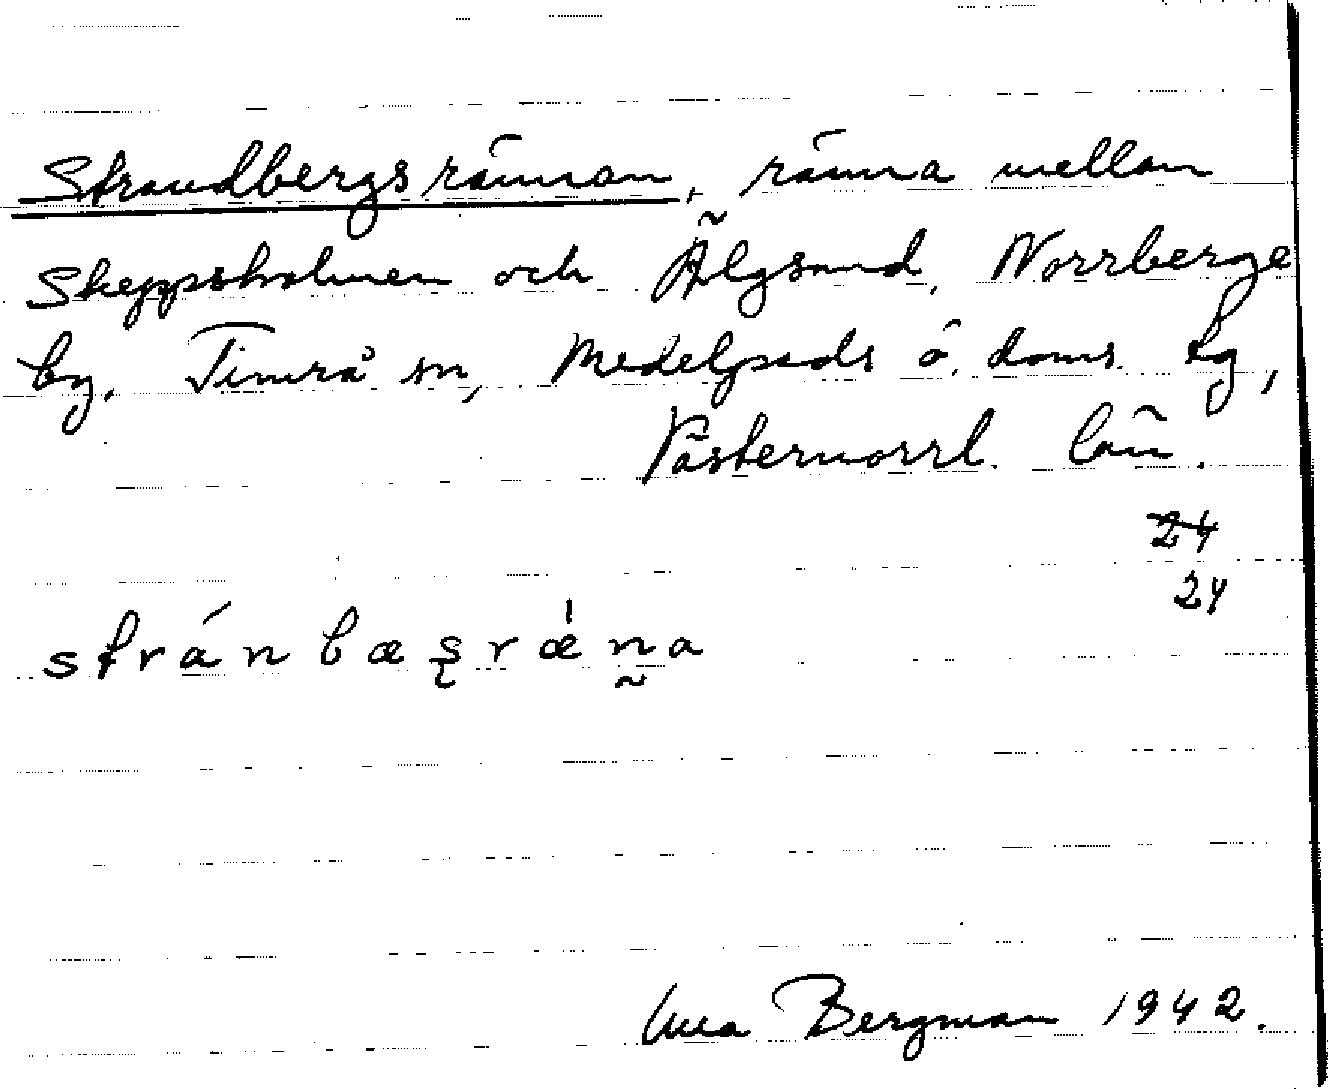 Strandbergsrännan, ränna mellan
Skeppsholmen och Älgsund, Norrberge
by. Timrå sn, Medelpads ö. doms. tg,
Västernorrl. län.
24
24
stránbæşrǽn̰a
Bergman 1942.